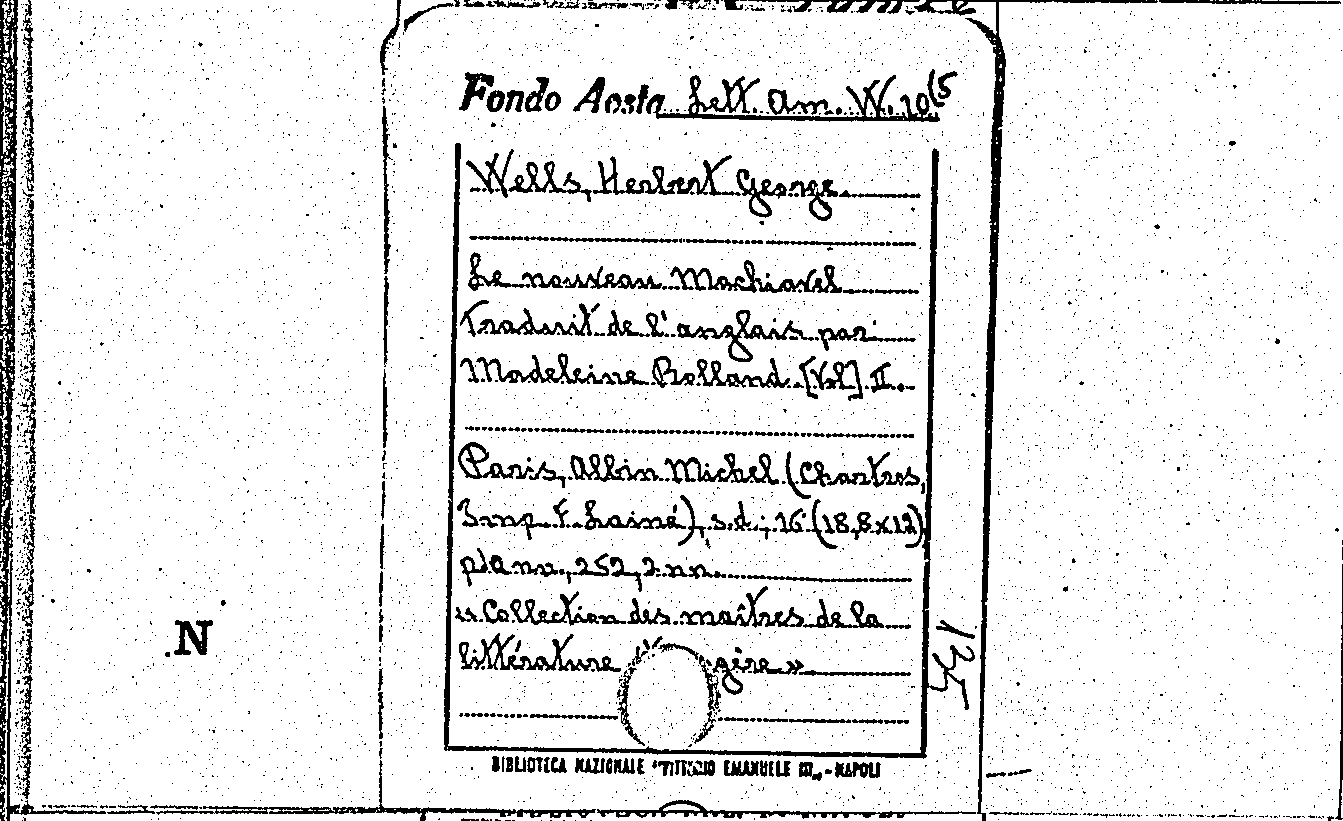 Fondo Aosta Lett. Am. W. 10(5
Wells, Herbert George.
Le nouveau Machiavel
Traduit de l'anglais par
Madeleine Rolland. [Vol] II.
Paris, Albin Michel (Chartres,
Imp. F. Lainé), s.d.; 16° (18,8x12)
nn., 252, 2 nn.
« Collection des maîtres de la
littérature »
N
BIBLIOTECA NAZIONALE "VITTORIO EMANUELE III" - NAPOLI